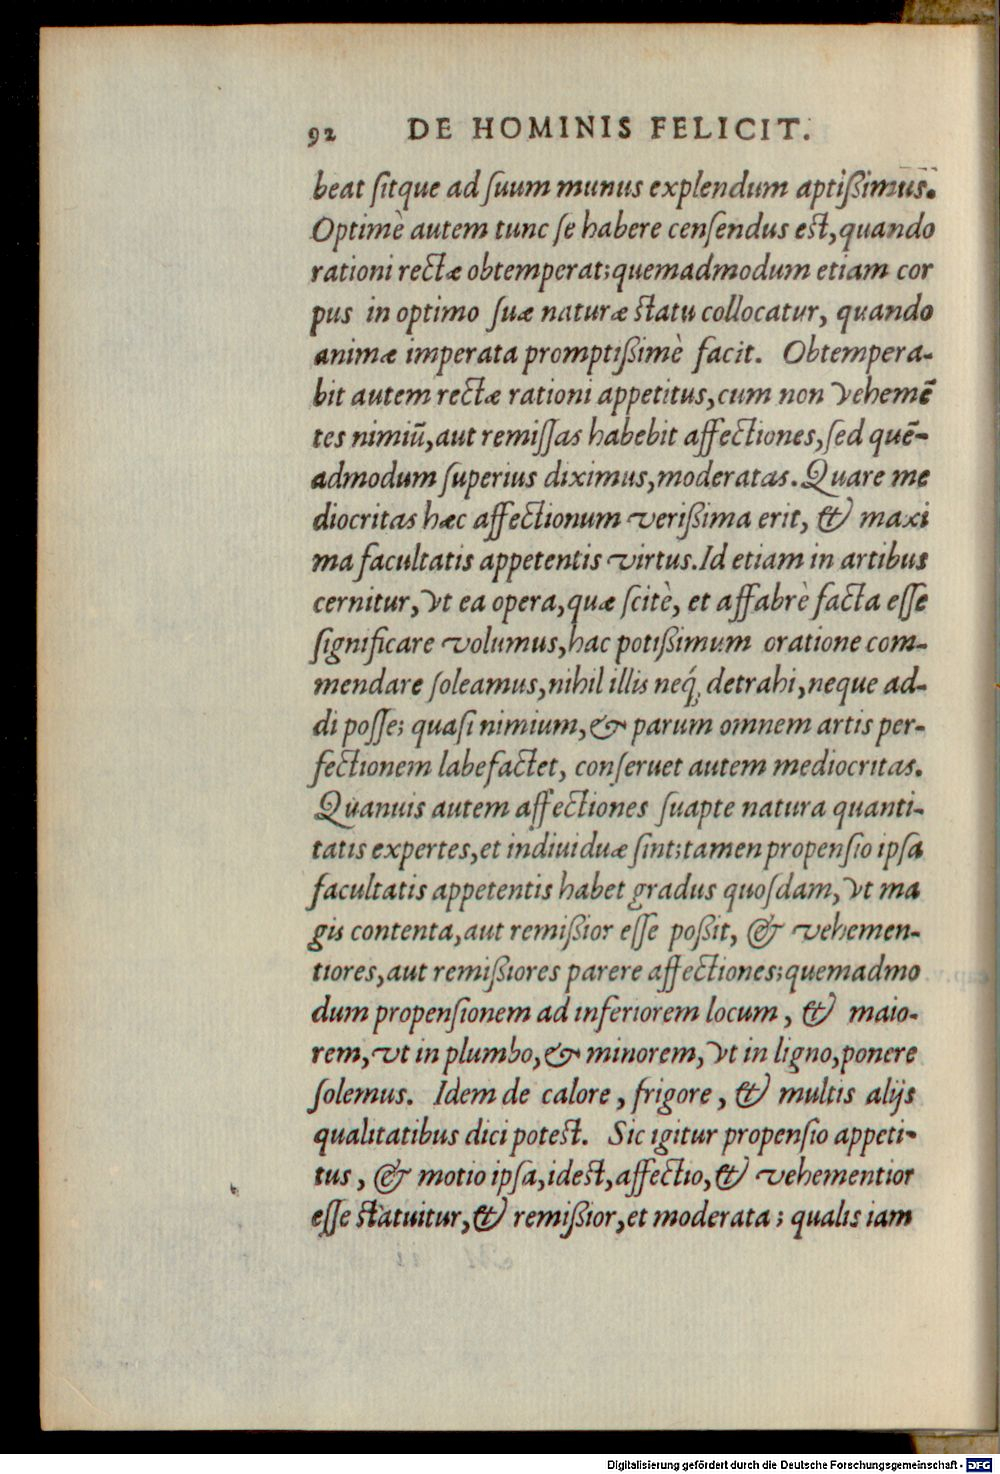 92 DE HOMINIS FELICIT.
beat sitque ad suum munus explendum aptißimus.
Optimè autem tunc se habere censendus est, quando
rationi rectæ obtemperat; quemadmodum etiam cor
pus in optimo suæ naturæ statu collocatur, quando
animæ imperata promptißimè facit. Obtempera-
bit autem rectæ rationi appetitus, cum non vehemē
tes nimiũ, aut remissas habebit affectiones, sed quē-
admodum superius diximus, moderatas. Quare me
diocritas hæc affectionum verißima erit, & maxi
ma facultatis appetentis virtus. Id etiam in artibus
cernitur, vt ea opera, quæ scitè, et affabrè facta esse
significare volumus, hac potißimum oratione com-
mendare soleamus, nihil illis neq́; detrahi, neque ad-
di posse; quasi nimium, & parum omnem artis per-
fectionem labefactet, conseruet autem mediocritas.
Quanuis autem affectiones suapte natura quanti-
tatis expertes, et indiuiduæ sint; tamen propensio ipsa
facultatis appetentis habet gradus quosdam, vt ma
gis contenta, aut remißior esse poßit, & vehemen-
tiores, aut remißiores parere affectiones; quemadmo
dum propensionem ad inferiorem locum, & maio-
rem, vt in plumbo, & minorem, vt in ligno, ponere
solemus. Idem de calore, frigore, & multis alijs
qualitatibus dici potest. Sic igitur propensio appeti-
tus, & motio ipsa, idest, affectio, & vehementior
esse statuitur, & remißior, et moderata; qualis iam
Digitalisierung gefördert durch die Deutsche Forschungsgemeinschaft - DFG